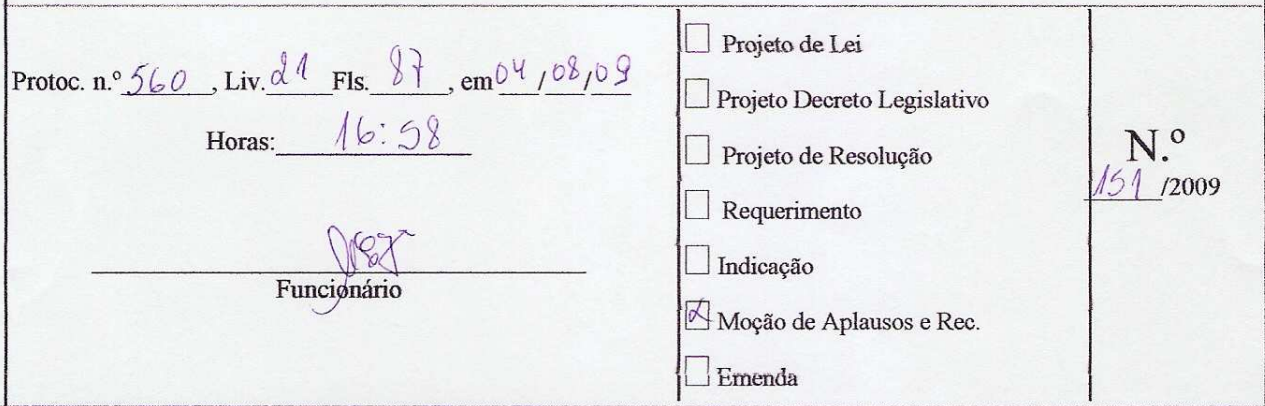 Protoc. n.º 560, Liv. 21 Fls. 87, em 04/08/09
Horas: 16:58
Funcionário
Projeto de Lei
Projeto Decreto Legislativo
Projeto de Resolução
Requerimento
Indicação
Moção de Aplausos e Rec.
Emenda
N.º
151/2009